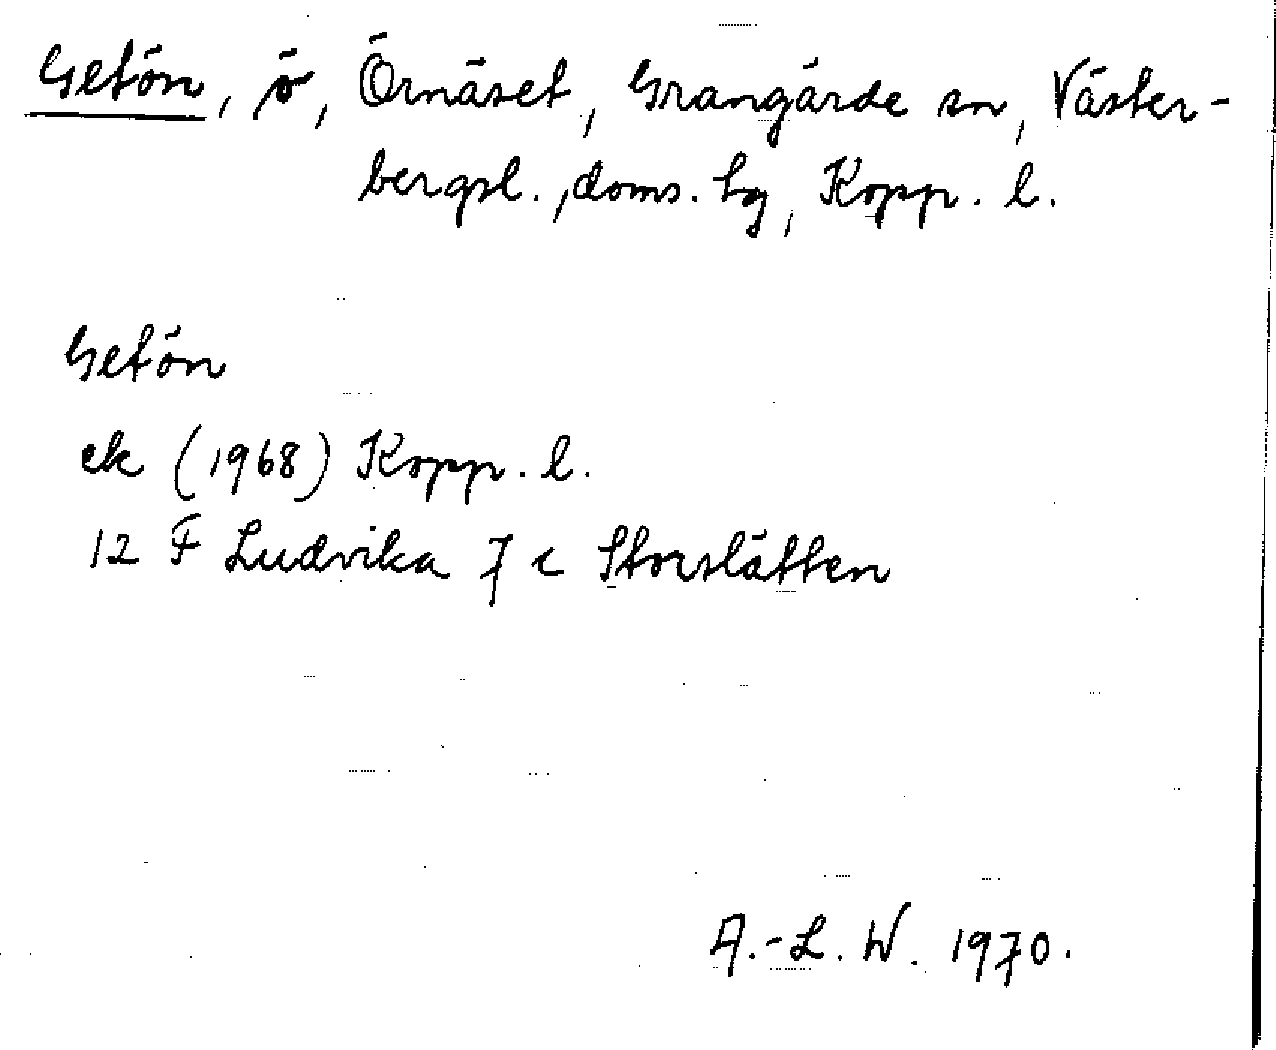 Getön, ö, Örnäset, Grangärde sn, Väster-
bergsl., doms. hg, Kopp. l.
Getön
ek (1968) Kopp. l.
12 F Ludvika 7 c Storslätten
A.-L. W. 1970.